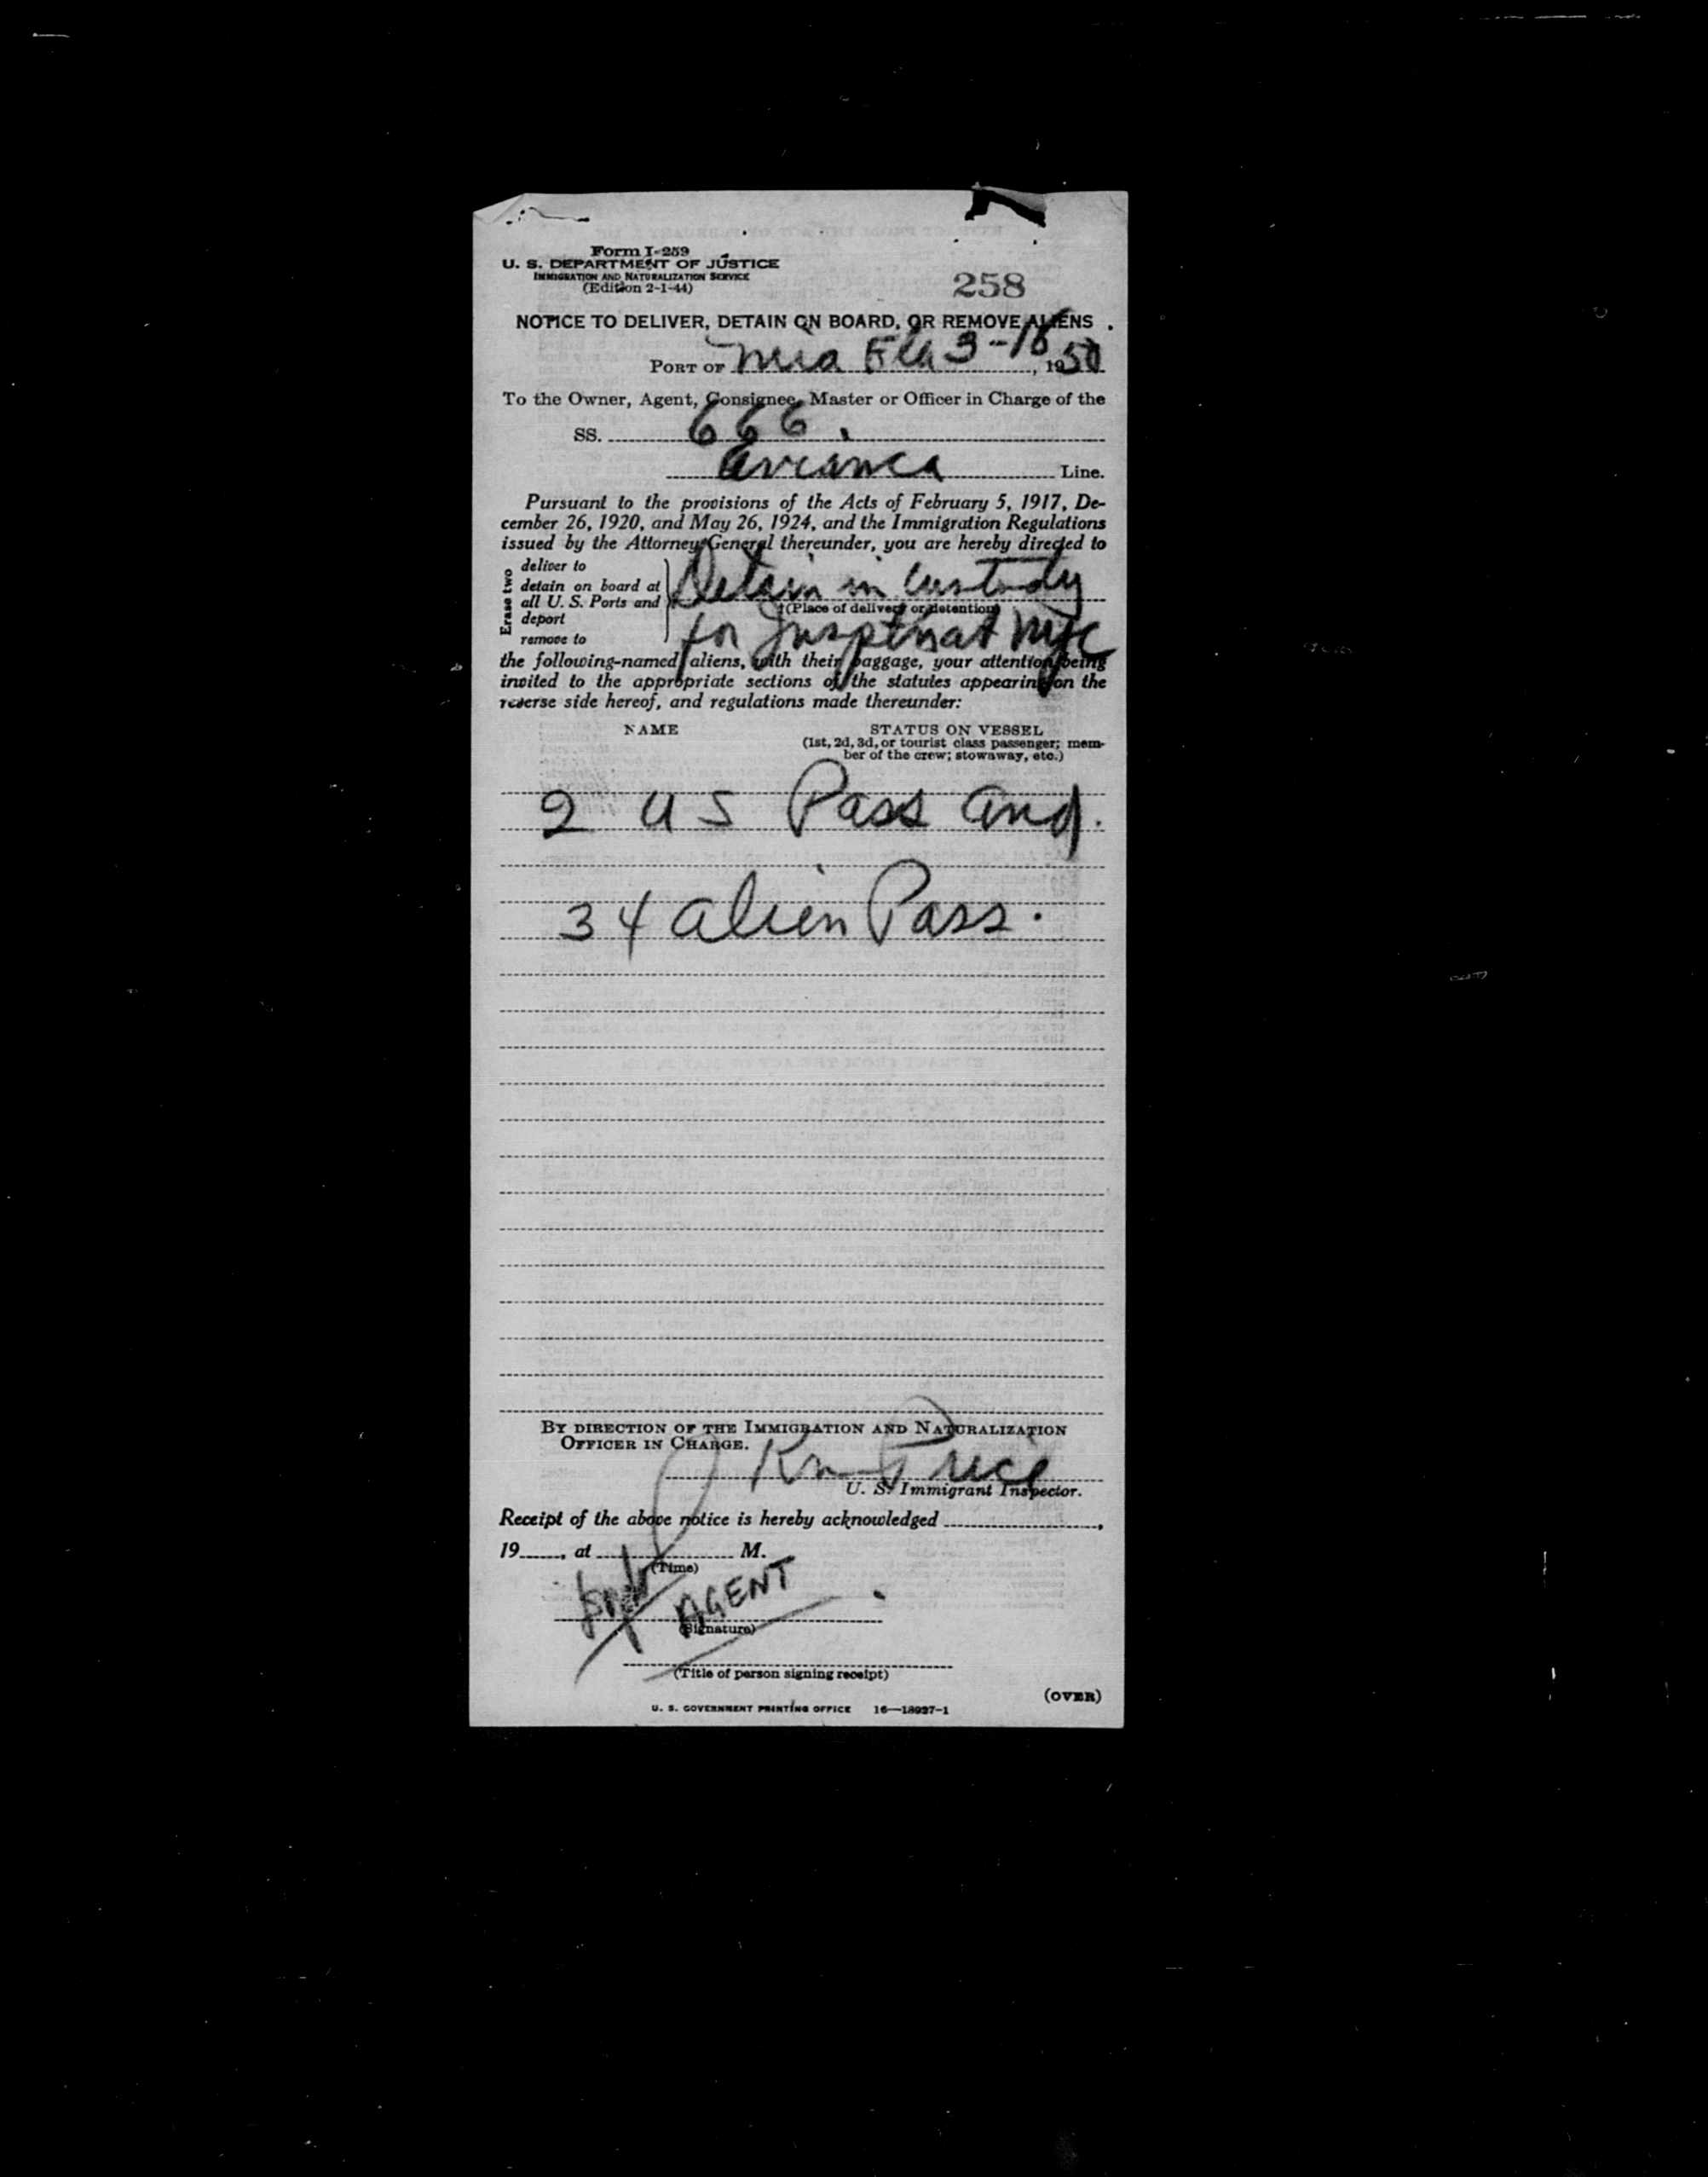 Form I-259
U. S. DEPARTMENT OF JUSTICE
IMMIGRATION AND NATURALIZATION SERVICE
(Edition 2-1-44)
258
NOTICE TO DELIVER, DETAIN ON BOARD, OR REMOVE ALIENS
PORT OF Mia Fla 3-16, 1950
To the Owner, Agent, Consignee, Master or Officer in Charge of the
SS. 666.
Avianca Line.
Pursuant to the provisions of the Acts of February 5, 1917, De-
cember 26, 1920, and May 26, 1924, and the Immigration Regulations
issued by the Attorney General thereunder, you are hereby directed to
Erase two
deliver to
detain on board at
all U. S. Ports and
deport
remove to
Detain in Custody
(Place of delivery or detention)
for Insptn at NYC
the following-named aliens, with their baggage, your attention being
invited to the appropriate sections of the statutes appearing on the
reverse side hereof, and regulations made thereunder:
NAME STATUS ON VESSEL
(1st, 2d, 3d, or tourist class passenger; mem-
ber of the crew; stowaway, etc.)
2 US Pass and.
34 alien Pass.
BY DIRECTION OF THE IMMIGRATION AND NATURALIZATION
OFFICER IN CHARGE.
Price
U. S. Immigrant Inspector.
Receipt of the above notice is hereby acknowledged ,
19 , at M.
(Time)
AGENT
(Signature)
(Title of person signing receipt)
(OVER)
U. S. GOVERNMENT PRINTING OFFICE 16—18927-1